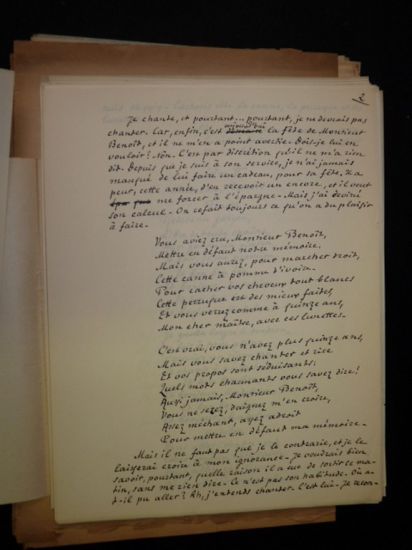 2
Je chante, et pourtant... pourtant, je ne devrais pas
chanter. Car, enfin, c'est aujourd'hui la fête de Monsieur
Benoît, et il ne m'en a point avertie. Dois-je lui en
vouloir? Non. C'est par discrétion qu'il ne m'a rien
dit. Depuis que je suis à son service, je n'ai jamais
manqué de lui faire un cadeau, pour sa fête. Il a
peur, cette année, d'en recevoir un encore, et il veut
me forcer à l'épargne. Mais j'ai deviné
son calcul. On refait toujours ce qu'on a du plaisir
à faire.
Vous aviez cru, Monsieur Benoît,
Mettre en défaut notre mémoire.
Mais vous aurez, pour marcher droit,
Cette canne à pomme d'ivoire.
Pour cacher vos cheveux tout blancs
Cette perruque est des mieux faites,
Et vous verrez comme à quinze ans,
Mon cher maître, avec ces lunettes.
C'est vrai, vous n'avez plus quinze ans,
Mais vous savez chanter et rire
Et vos propos sont séduisants:
Quels mots charmants vous savez dire!
Aussi jamais, Monsieur Benoît,
Vous ne serez, daignez m'en croire,
Assez méchant, assez adroit
Pour mettre en défaut ma mémoire.
Mais il ne faut pas que je le contrarie, et je le
laisserai croire à mon ignorance. Je voudrais bien
savoir, pourtant, quelle raison il a eue de sortir ce ma-
tin, sans me rien dire. Ce n'est pas son habitude. Où a-
t-il pu aller? Ah, j'entends chanter. C'est lui. Je recon-